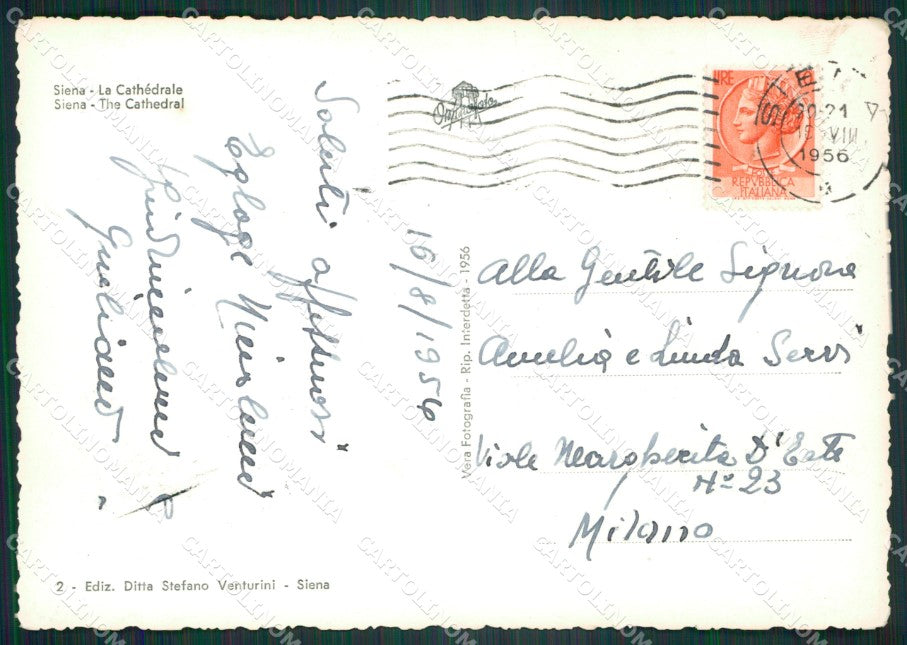 Siena - La Cathédrale
Siena - The Cathedral
Saluti affettuosi
16/8/1956
Vera Fotografia - Rip. Interdetta - 1956
LIRE
REPVBBLICA
ITALIANA
20-21
VIII
1956
Alla Gentile Signora
Amelia e Linda Servi
Viale Margherita D'Este
N° 23
Milano
2 - Ediz. Ditta Stefano Venturini - Siena
CARTOLINOMANIA